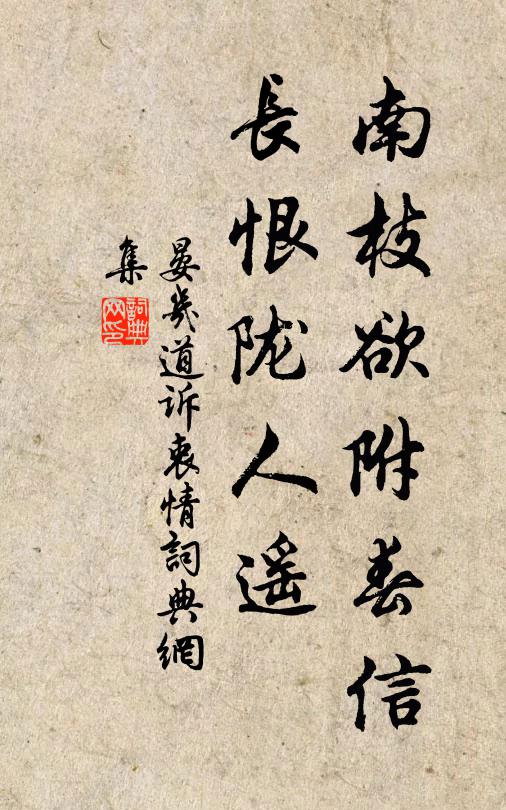 南枝欲附春信
長恨陇人遥
晏幾道诉衷情詞典網
集
詞典网印